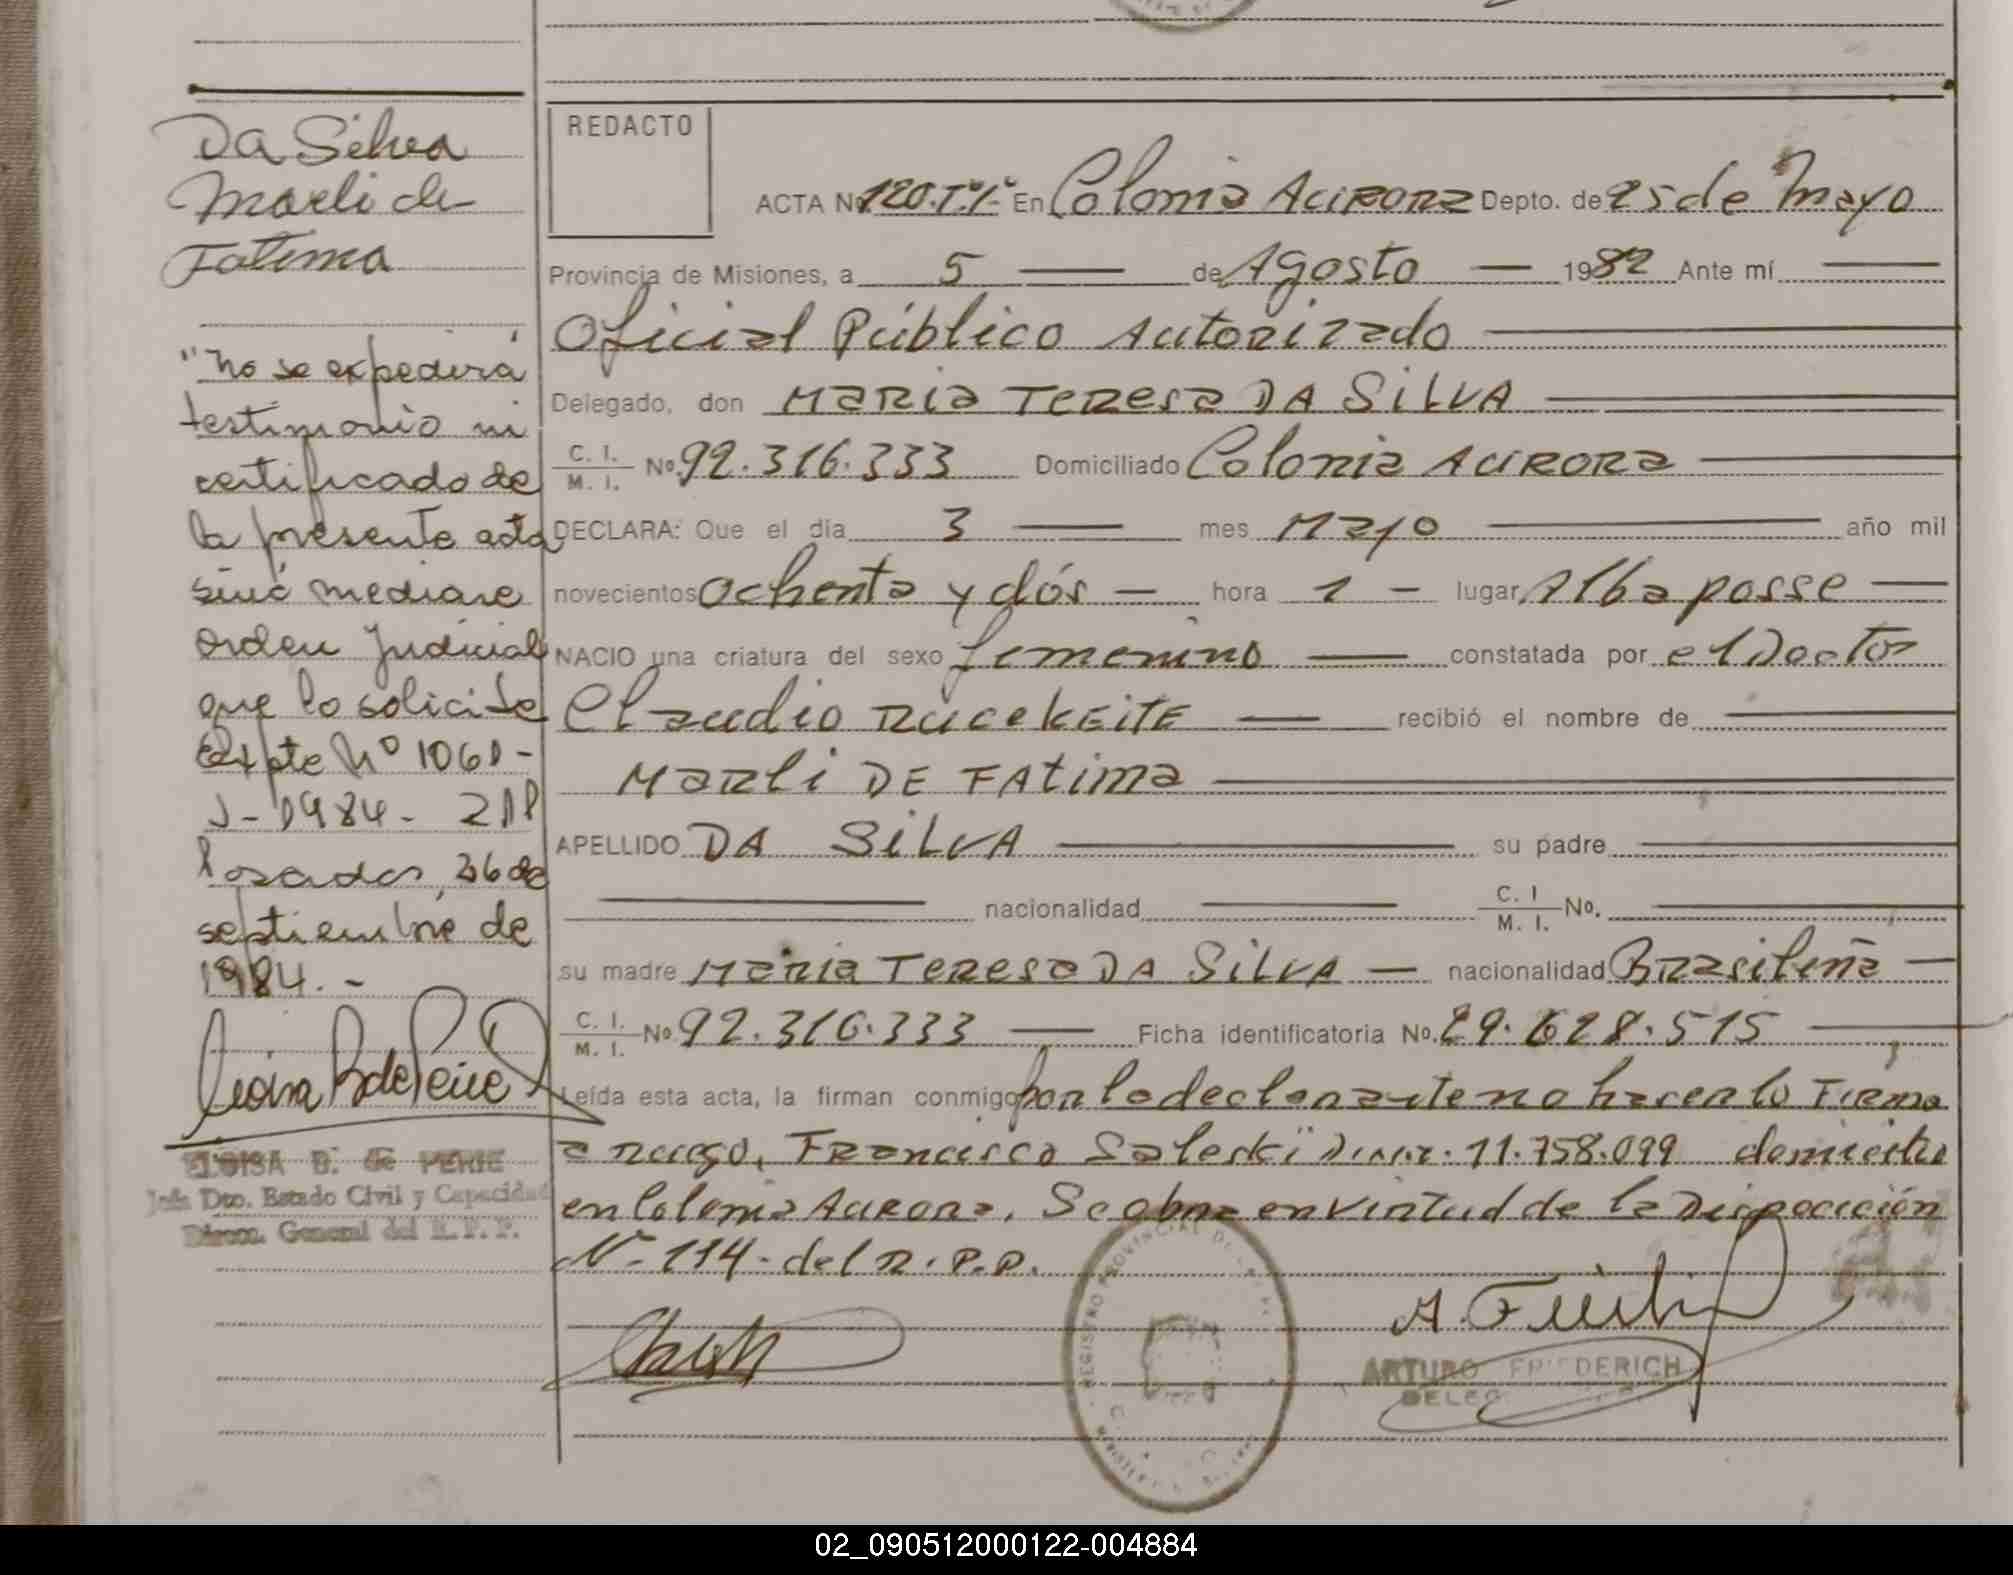 Da Silva
Marli de
Fatima
"No se expedirá
testimonio ni
certificado de
la presente acta
sino mediare
orden Judicial
que lo solicite
Expte Nº 1061-
J-1984-
Posadas, 26 de
septiembre de
1984.-
ELOISA B. de PERIE
Jefa Dto. Estado Civil y Capacidad
Direcc. General del R.P.P.
REDACTO
ACTA Nº 120.Tº1º En Colonia Aurora Depto. de 25 de Mayo
Provincia de Misiones, a 5 de Agosto 1982 Ante mí
Oficial Público Autorizado
Delegado, don Maria Teresa DA SILVA
C. I. M. I. Nº 92.316.333 Domiciliado Colonia Aurora
DECLARA: Que el día 3 mes Mayo año mil
novecientos ochenta y dós hora 1 lugar Alba posse
NACIO una criatura del sexo femenino constatada por el Doctor
Claudio recibió el nombre de
Marli DE FAtima
APELLIDO DA SILVA su padre
nacionalidad C. I M. I. Nº.
su madre Maria Teresa DA SILVA nacionalidad Brasileña
C. I. M. I. Nº 92.316.333 Ficha identificatoria Nº. 29.628.515
Leída esta acta, la firman conmigo por la declarante no hacerlo Firma
a ruego, Francisco Saleski 11.758.099 domicilio
en Colonia Aurora. Se obra en virtud de la Disposición
Nº 114- del R.P.P.
REGISTRO PROVINCIAL DE
A. F
ARTURO FRIEDERICH
DELEG
02_090512000122-004884